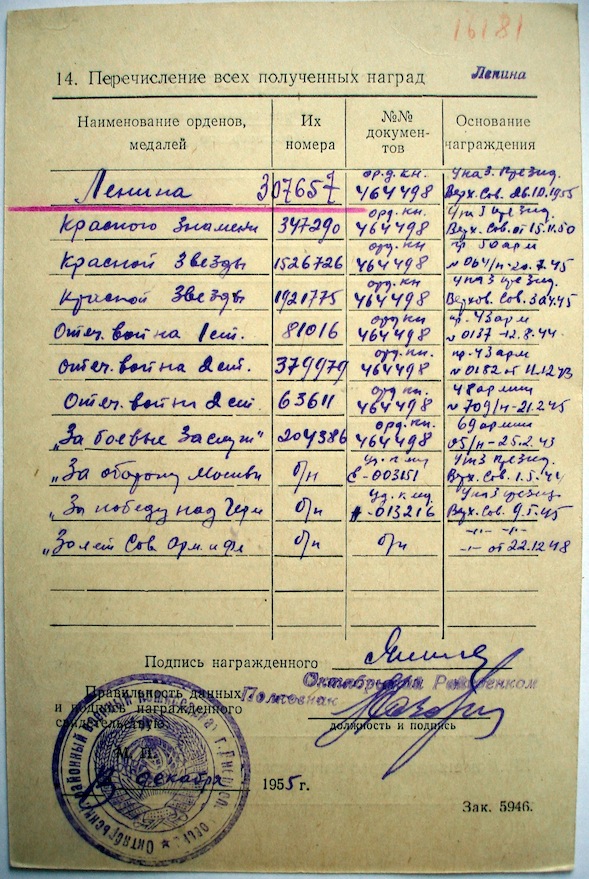 16181
14. Перечисление всех полученных наград Ленина
Наименование орденов, медалей
Их номера
№№ документов
Основание награждения
Ленина 307657 орд. кн. 464498 Указ. През. Верх. Сов. 26.10.1955
Красного Знамени 347290 орд. кн. 464498 Верх. Сов. от 15.11.50
Красной Звезды 1526726 орд. кн. 464498 пр. 50 арм № 064/н-20.7.45
Красной Звезды 1921775 орд. кн. 464498 Верхов. Сов.
Отеч. война 1 ст. 81016 орд. кн 464498 пр. 43 арм № 0137-12.8.44.
Отеч. война 2 ст. 379979 орд. кн. 464498 пр. 43 арм № 0182 от 11.12.43
Отеч. война 2 ст. 63611 орд. кн. 464498 48 армии № 709/н-21.2.45
„За боевые Заслуги" 204386 орд. кн. 464498 69 армии 05/н-25.2.43
„За оборону Москвы б/н Уд. к мед Верх. Сов. 1.5.44
„За победу над Герм б/н Уд. к мед -013216 Верх. Сов. 9.5.45
„30 лет Сов. Арм. и Фл б/н б/н -"- от 22.12.48
Подпись награжденного
Октябрьский Райвоенком
Правильность данных
Полковник
и подпись награжденного
свидетельствую.
должность и подпись
М. П.
декабря 1955 г.
Зак. 5946.